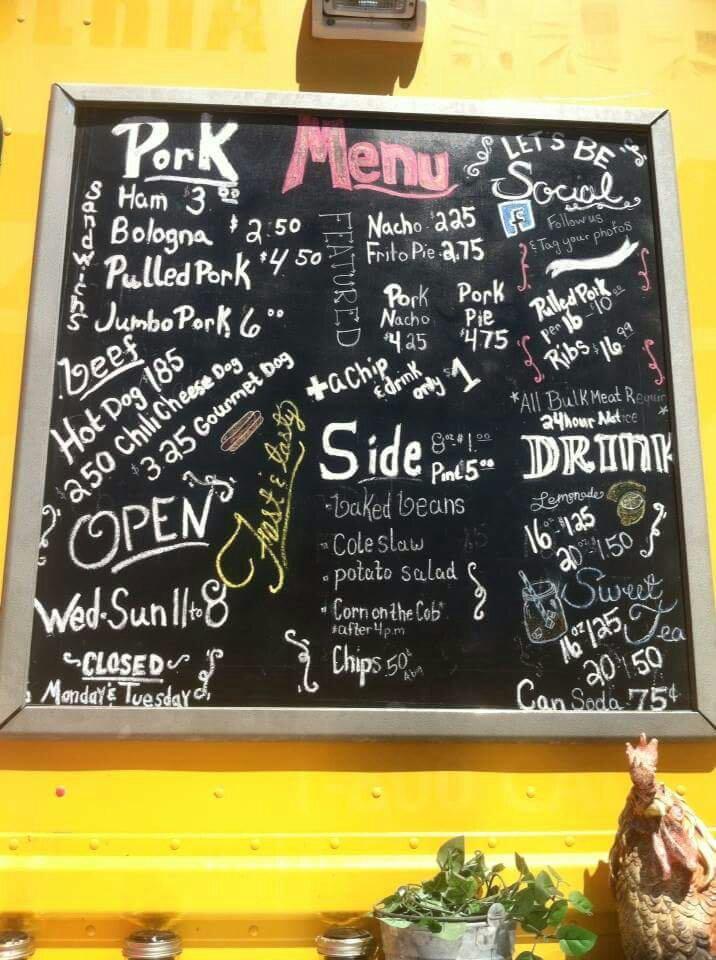 Pork
Sandwichs
Ham 3.00
Bologna $2.50
Pulled Pork $4 50
Jumbo Pork 6 00
beef
Hot Dog 1 85
$2 50 Chili Cheese Dog
$3.25 Gourmet Dog
Fast & tasty
OPEN
Wed-Sun 11 to 8
CLOSED
Monday & Tuesday
Menu
FEATURED
Nacho 2 25
Frito Pie 2.75
Pork Nacho $4 25
Pork Pie $4 75
+ a Chip & drink only $1
Side 8 oz $1.00
Pint 5 00
baked beans
Cole slaw
potato salad
Corn on the Cob*
*after 4 p.m
Chips .50¢
LET'S BE
Social
f Follow us
& Tag your photos
Pulled Pork
per lb $10 00
Ribs $16 99
*All Bulk Meat
24 hour Notice
DRINK
Lemonade
16 oz $1 25
20 oz $1 50
Sweet Tea
16 oz 1 25
20 1 50
Can Soda 75¢